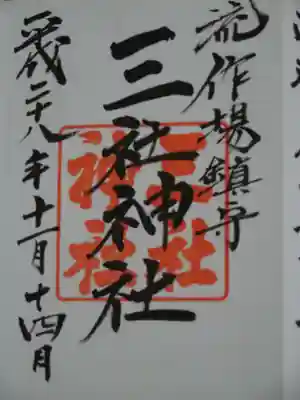 流作場鎮守
三社神社
三社
神社
平成二十八年十一月十四月